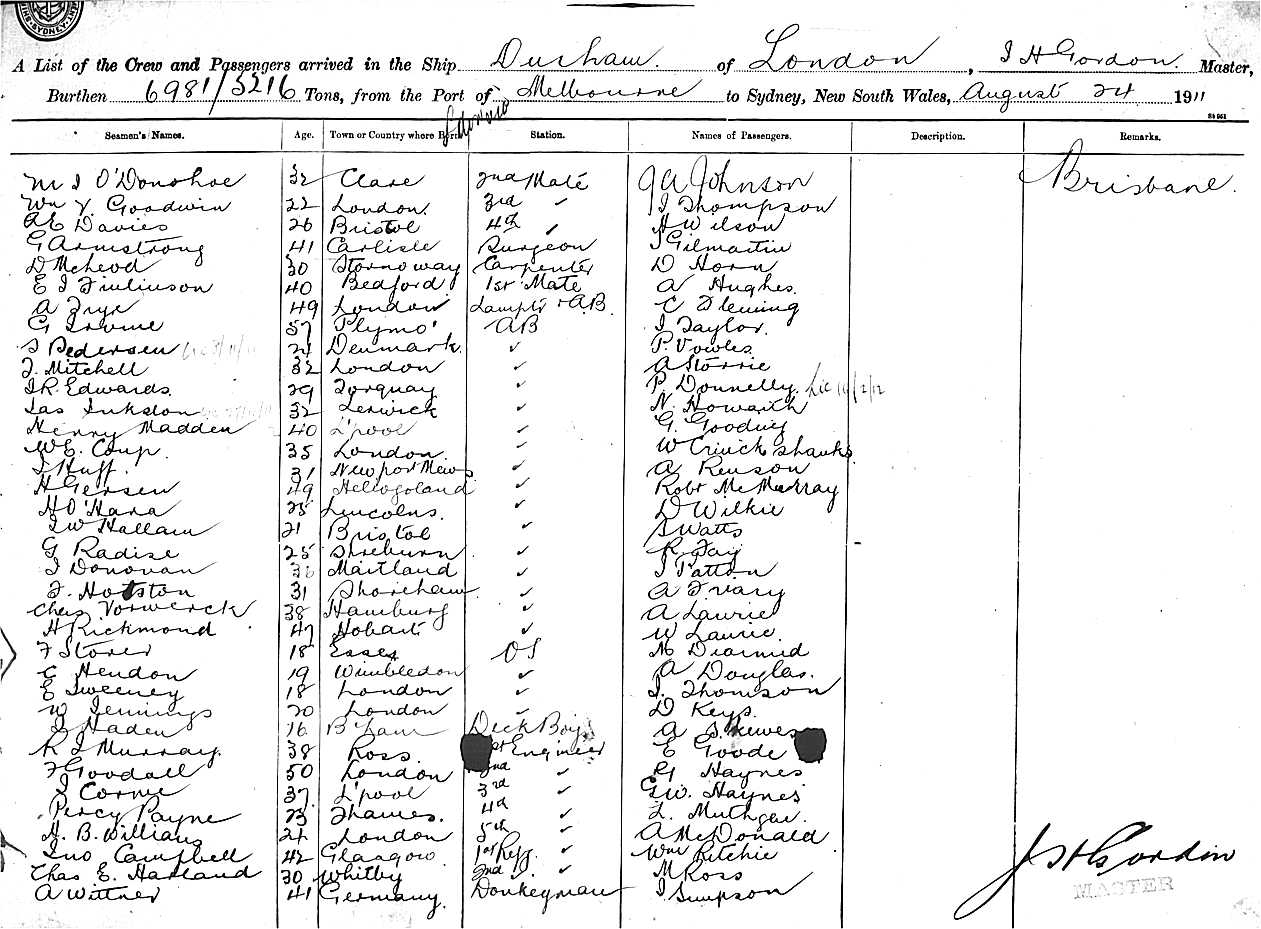 SYDNEY
A List of the Crew and Passengers arrived in the Ship Durham. of London, J H Gordon. Master,
Burthen 6981/5216 Tons, from the Port of Melbourne to Sydney, New South Wales, August 24 1911
Seamen's Names. Age. Town or Country where Born Station. Names of Passengers. Description. Remarks.
M J O'Donohoe 32 Clare 2nd Mate J A Johnson Brisbane.
Wm Y. Goodwin 22 London. 3rd ✓ J Thompson
A E Davies 26 Bristol 4th ✓ H Wilson
G Armstrong 41 Carlisle Surgeon J Gilmartin
D McLeod 30 Stornoway Carpenter D Horn
E J Tomlinson 40 Bedford 1st Mate A Hughes.
A Frye 49 London Lamptr & AB. C Fleming
G Irvine 57 Plymo' AB J Taylor.
S Pedersen 24 Denmark. ✓ P. Vowles
J. Mitchell 32 London ✓ A Storrie
J.R. Edwards. 29 Torquay ✓ P Donnelly. Lic 14/2/12
Jas Inkston 32 Lerwick ✓ N Howarth
Henry Madden 40 L'pool ✓ G. Gooding
W.E. Coup. 35 London. ✓ W Cruickshanks
J Huff. 31 Newport Mews ✓ A Renson
H Gersen 49 Heligoland ✓ Robt McMurray
H O'Hara 25 Lincolns. ✓ D Wilkie
J W Hallam 21 Bristol ✓ S Watts
G Radise 25 Shreburn ✓ R. Fay
J Donovan 36 Maitland ✓ J Patton
F. Hotston 31 Shoreham. ✓ A Friary
Chas Vorwerck 38 Hamburg ✓ A Laurie
H Rickmond 47 Hobart ✓ W Laurie.
F Storer 18 Essex OS M Diarmid
C Hendon 19 Wimbledon ✓ A Douglas.
E Sweeney 18 London ✓ J. Thomson
W Jennings 20 London ✓ D Keys.
J Haden 16 B'ham Deck Boy A Skewes
R J Murray. 38 Ross. Engineer E Goode
F Goodall 50 London 2nd ✓ G Haynes
J Corne 37 L'pool 3rd ✓ G W. Haynes
Percy Payne 23 Thames. 4th ✓ L. Muthger.
H. B. Williams 24 London 5th ✓ A McDonald
Jno Campbell 42 Glasgow. 1st Refg. ✓ Wm Ritchie J H Gordon
Chas E. Harland 30 Whitby 2nd D. ✓ M Ross MASTER
A Wittner 41 Germany. Donkeyman J Simpson